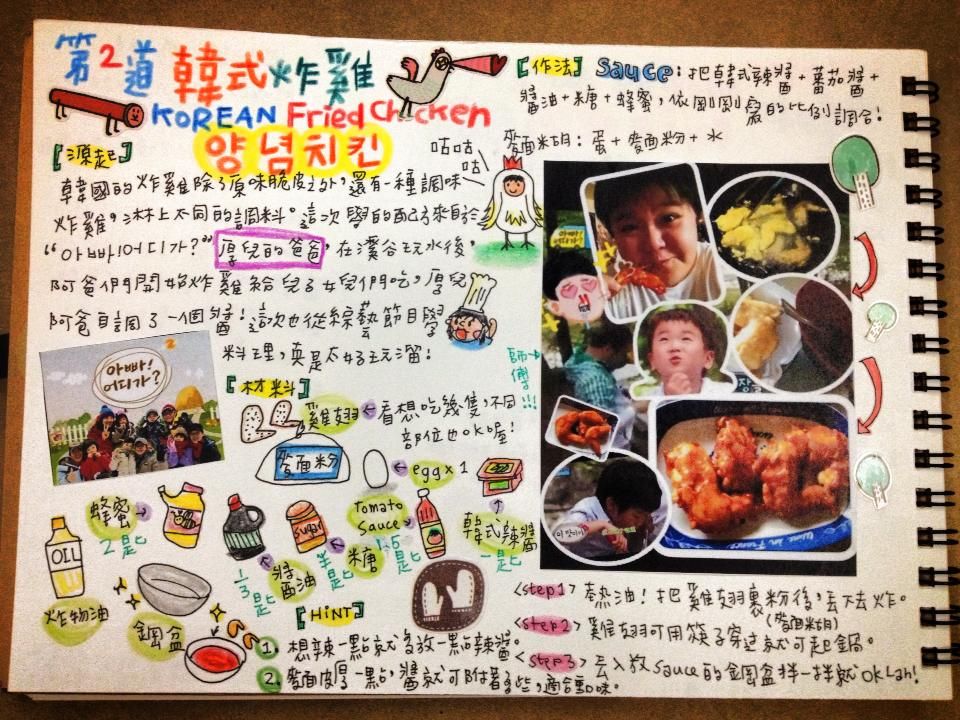 第2道 韓式炸雞
KOREAN Fried Chicken
양념치킨
[源起]
韓國的炸雞除了原味脆皮之外,還有一種調味
炸雞,淋上不同的調料。這次學的配方來自於
"아빠!어디가?" 厚兒的爸爸,在溪谷玩水後,
阿爸們開始炸雞給兒子女兒們吃,厚兒
阿爸自調了一個醬!這次也從綜藝節目學
料理,真是太好玩溜!
咕咕
咕
師傅!!!
아빠!
어디가?
2
[材料]
雞翅 ← 看想吃幾隻,不同
部位也OK喔!
麥面粉
egg x 1
蜂蜜
2匙
OIL
炸物油
鋼盆
醬油
1/3匙
sugar
糖
半匙
Tomato
sauce
1.5匙
韓式辣醬
一匙
[HiNT]
1. 想辣一點就多放一點辣醬。
2. 麵皮厚一點,醬就可附著多些,適合重口味。
[作法] Sauce: 把韓式辣醬+蕃茄醬+
醬油+糖+蜂蜜,依剛剛寫的比例調合!
麥面米胡: 蛋+麥面粉+水
<step1> 熱油!把雞翅裹粉後,丟下去炸。
(麥面米胡)
<step2> 雞翅可用筷子穿過就可起鍋。
<step3> 丟入放Sauce的鋼盆拌一拌就OK Lah!